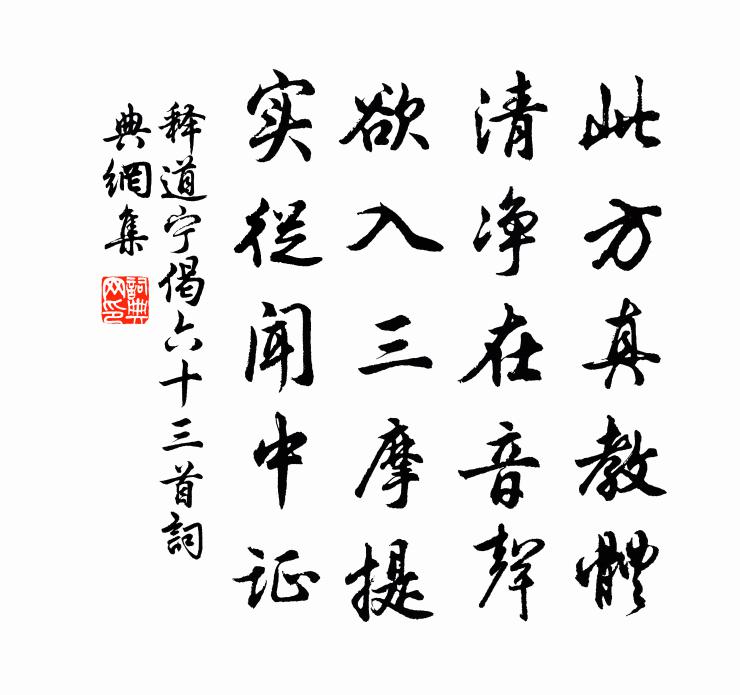 此方真教體
清净在音聲
欲入三摩提
实從聞中证
释道宁偈六十三首詞
典網集
詞典
网印